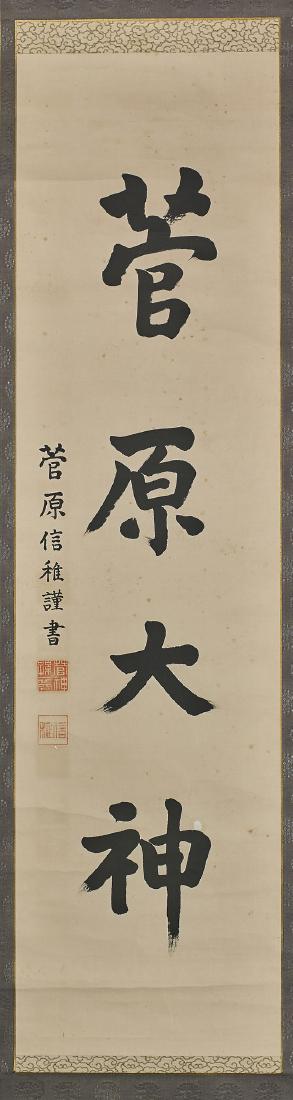 菅原大神
菅原信稚謹書